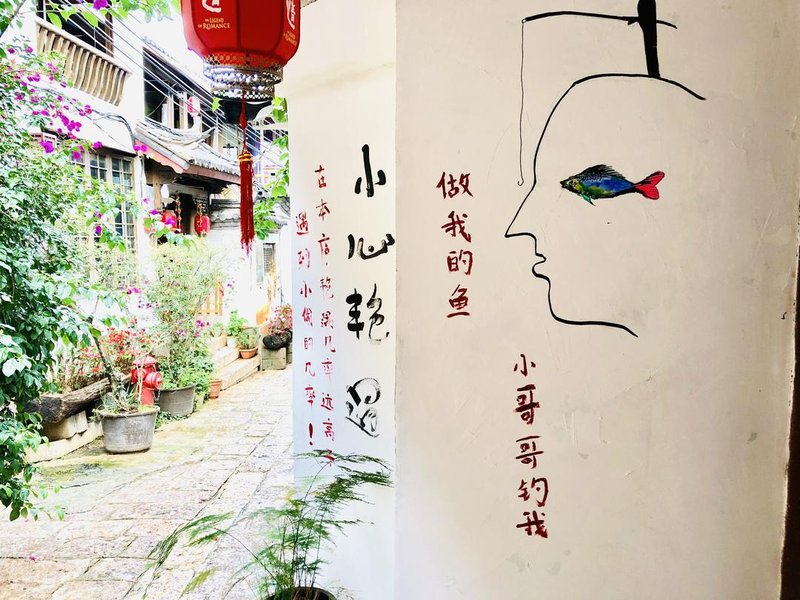 THE LEGEND
OF ROMANCE
小心艳遇
在本店,艳遇几率远高于
遇到小偷的几率!
做我的鱼
小哥哥钓我